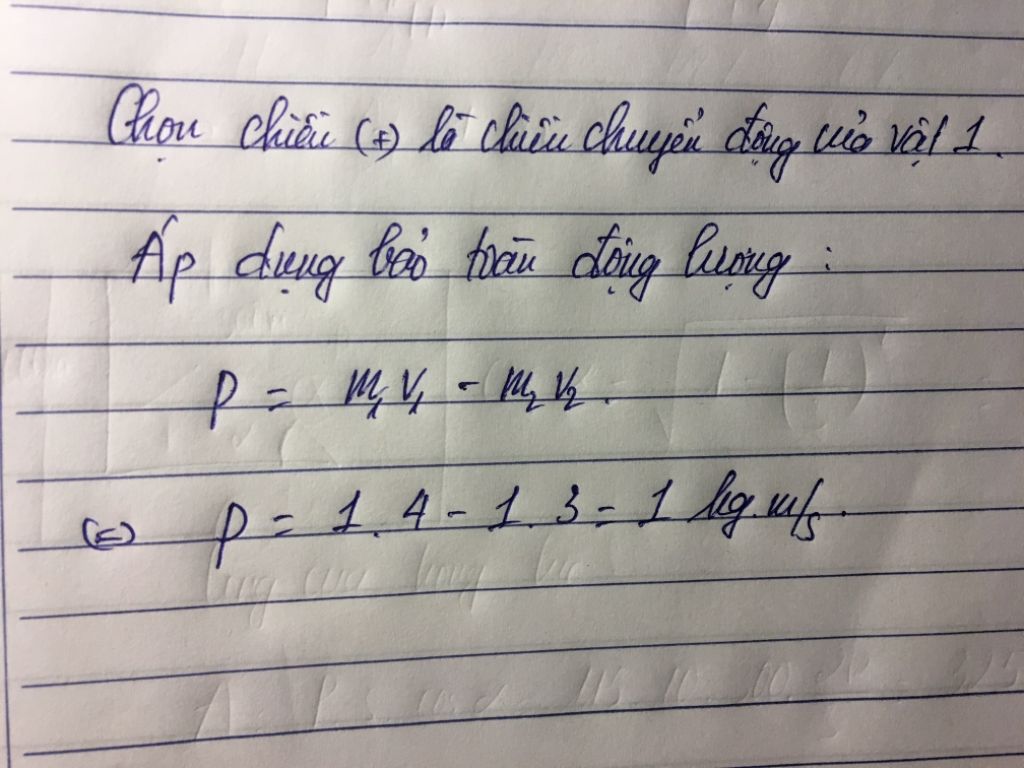 Chọn chiều (+) là chiều chuyển động của vật 1.
Áp dụng bảo toàn động lượng :
p = m₁v₁ - m₂v₂.
(=) p = 1.4 - 1.3 = 1 kg.m/s.